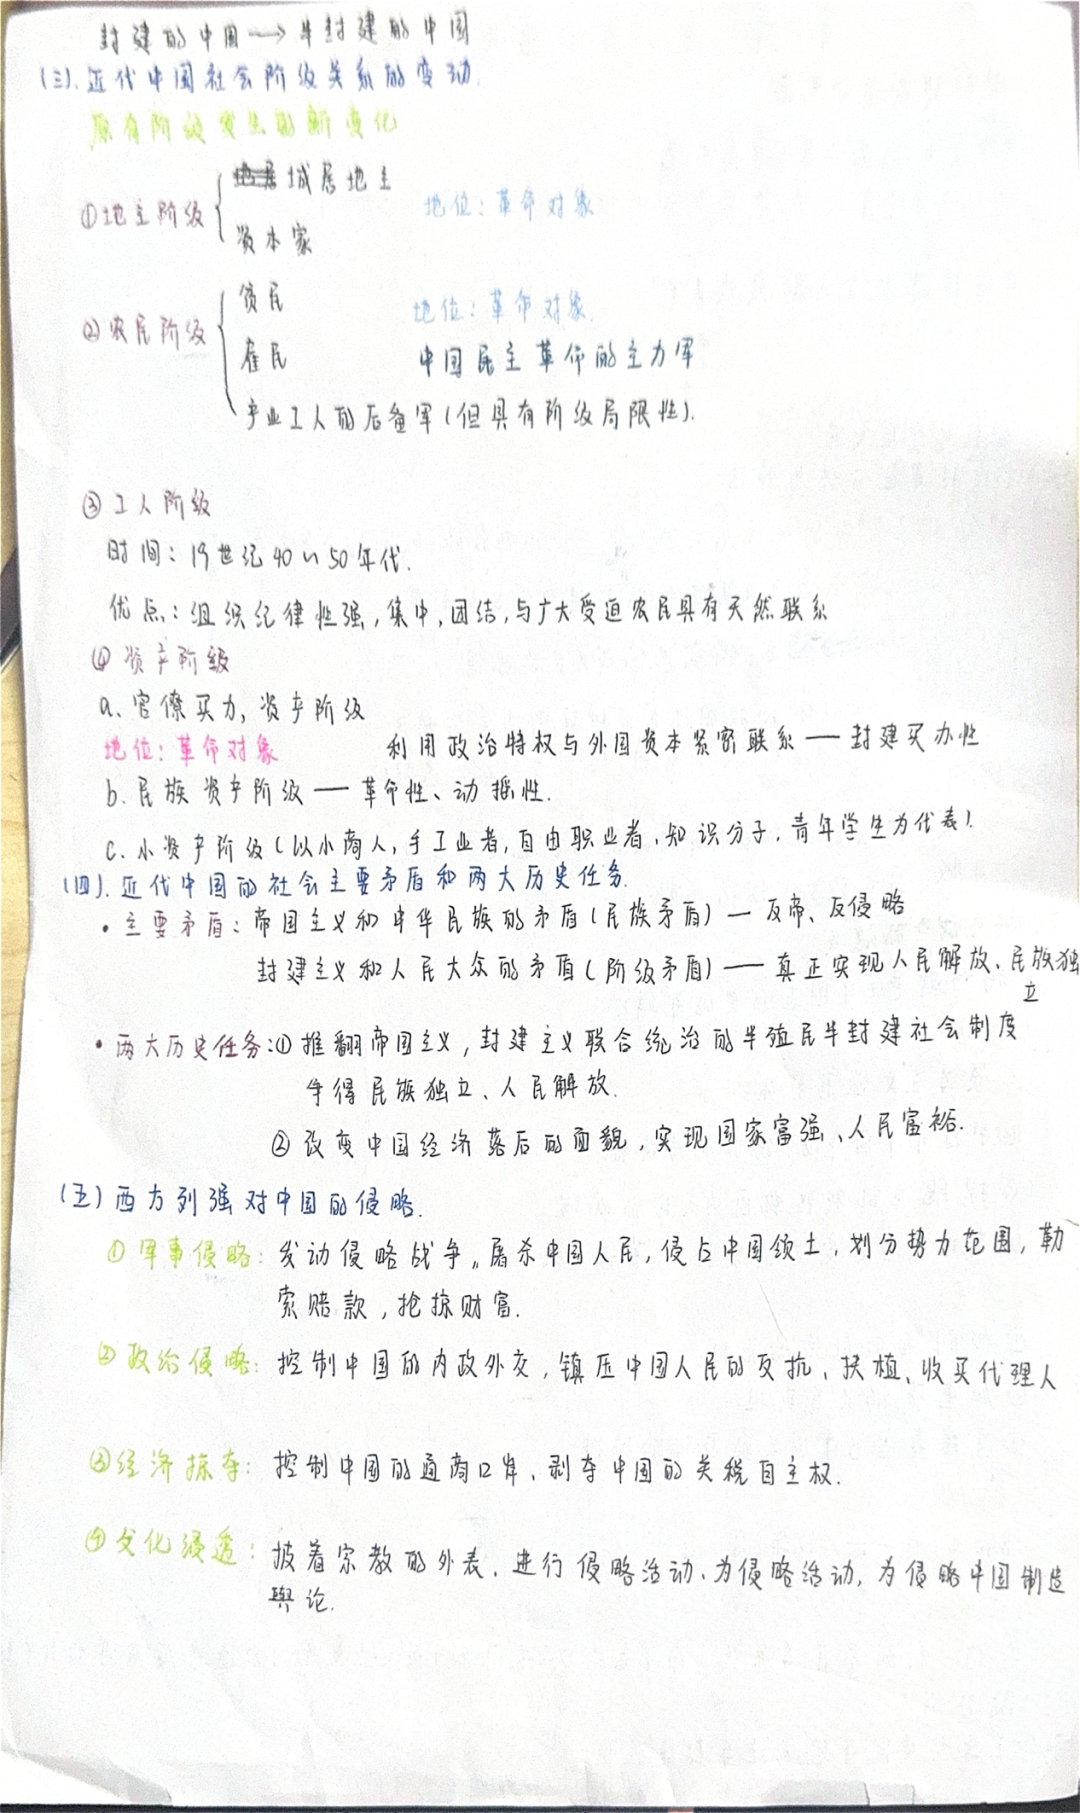 封建的中国→半封建的中国
(三).近代中国社会阶级关系的变动.
原有阶级发生的新变化
①地主阶级
城居地主
资本家
地位：革命对象
②农民阶级
贫民
雇民
产业工人的后备军(但具有阶级局限性).
地位：革命对象.
中国民主革命的主力军
③工人阶级
时间：19世纪40~50年代.
优点：组织纪律性强,集中,团结,与广大受迫农民具有天然联系
④资产阶级
a、官僚买力,资产阶级
地位：革命对象
利用政治特权与外国资本紧密联系——封建买办性
b.民族资产阶级——革命性、动摇性.
c.小资产阶级(以小商人,手工业者,自由职业者,知识分子,青年学生为代表).
(四).近代中国的社会主要矛盾和两大历史任务.
•主要矛盾：帝国主义和中华民族的矛盾(民族矛盾)—反帝、反侵略
封建主义和人民大众的矛盾(阶级矛盾)——真正实现人民解放、民族独
立
•两大历史任务：①推翻帝国主义,封建主义联合统治的半殖民半封建社会制度
争得民族独立、人民解放.
②改变中国经济落后的面貌,实现国家富强、人民富裕.
(五)西方列强对中国的侵略.
①军事侵略：发动侵略战争,屠杀中国人民,侵占中国领土,划分势力范围,勒
索赔款,抢掠财富.
②政治侵略：控制中国的内政外交,镇压中国人民的反抗、扶植、收买代理人
③经济掠夺：控制中国的通商口岸、剥夺中国的关税自主权.
④文化浸透：披着宗教的外表,进行侵略活动、为侵略活动,为侵略中国制造
舆论.